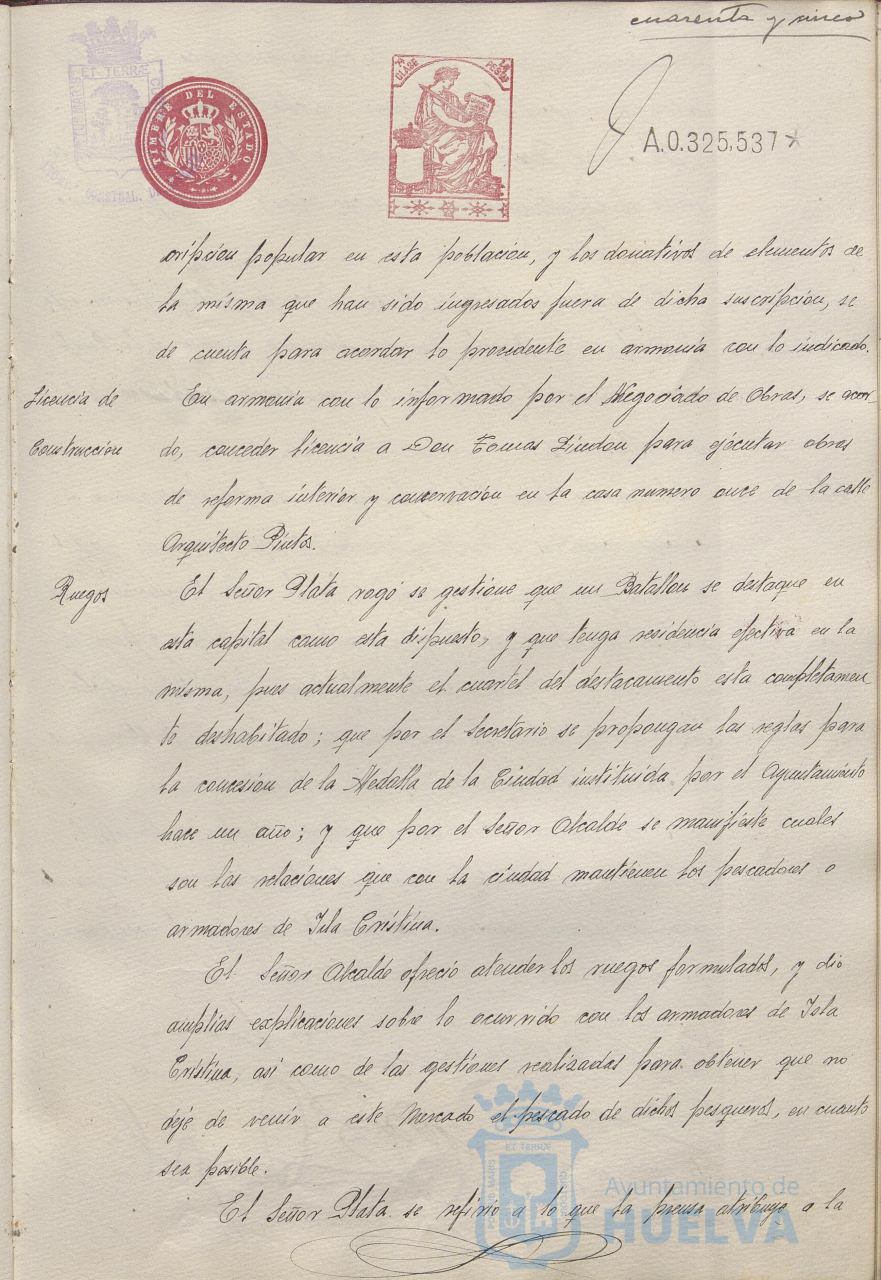 cuarenta y cinco
7ª CLASE
PESETAS
TIMBRE DEL ESTADO
ET TERRÆ
A.0.325,537*
cripcion popular en esta poblacion, y los donativos de elementos de
la misma que han sido ingresados fuera de dicha suscripcion, se
de cuenta para acordar lo procedente en armonia con lo indicado.
Licencia de
Construccion
En armonia con lo informado por el Negociado de Obras, se acor-
do, conceder licencia a Don Tomas Lindon para ejecutar obras
de reforma interior y conservacion en la casa numero once de la calle
Arquitecto Pintos.
Ruegos
El Señor Plata rogó se gestione que un Batallon se destaque en
esta capital como esta dispuesto, y que tenga residencia efectiva en la
misma, pues actualmente el cuartel del destacamento esta completamen
te deshabitado; que por el Secretario se propongan las reglas para
la concesion de la Medalla de la Ciudad instituida por el Ayuntamiento
hace un año; y que por el Señor Alcalde se manifieste cuales
son las relaciones que con la ciudad mantienen los pescadores o
armadores de Isla Cristina.
El Señor Alcalde ofreció atender los ruegos formulados, y dio
amplias explicaciones sobre lo ocurrido con los armadores de Isla
Cristina, asi como de las gestiones realizadas para obtener que no
deje de venir a este Mercado el pescado de dichos pesqueros, en cuanto
sea posible.
El Señor Plata se refirio a lo que la prensa atribuye a la
ET TERRÆ
Ayuntamiento de
HUELVA